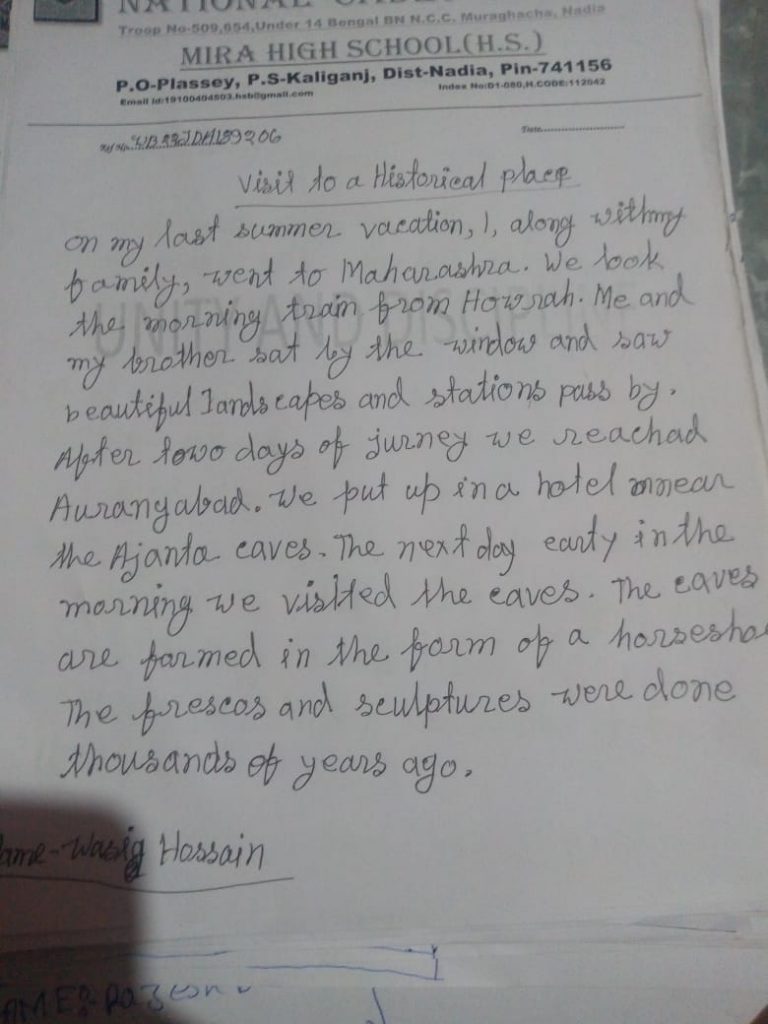 NATIONAL CADE
Troop No-509,654,Under 14 Bengal BN N.C.C. Muraghacha, Nadia
MIRA HIGH SCHOOL(H.S.)
P.O-Plassey, P.S-Kaliganj, Dist-Nadia, Pin-741156
Email Id:19100404503.hsb@gmail.com Index No:D1-080,H.CODE:112042
Date
Visit to a Historical place
on my last summer vacation, I, along withmy
family, went to Maharashra. We took
the morning train from Howrah. Me and
my brother sat by the window and saw
beautiful landscapes and stations pass by.
After towo days of jurney we reachad
Aurangabad. We put up in a hotel mnear
the Ajanta caves. The next day earty in the
morning we visited the caves. The caves
are formed in the form of a horsesho
The frescos and sculptures were done
thousands of years ago.
UNITY AND DISCIPLINE
ame-Wasig Hossain